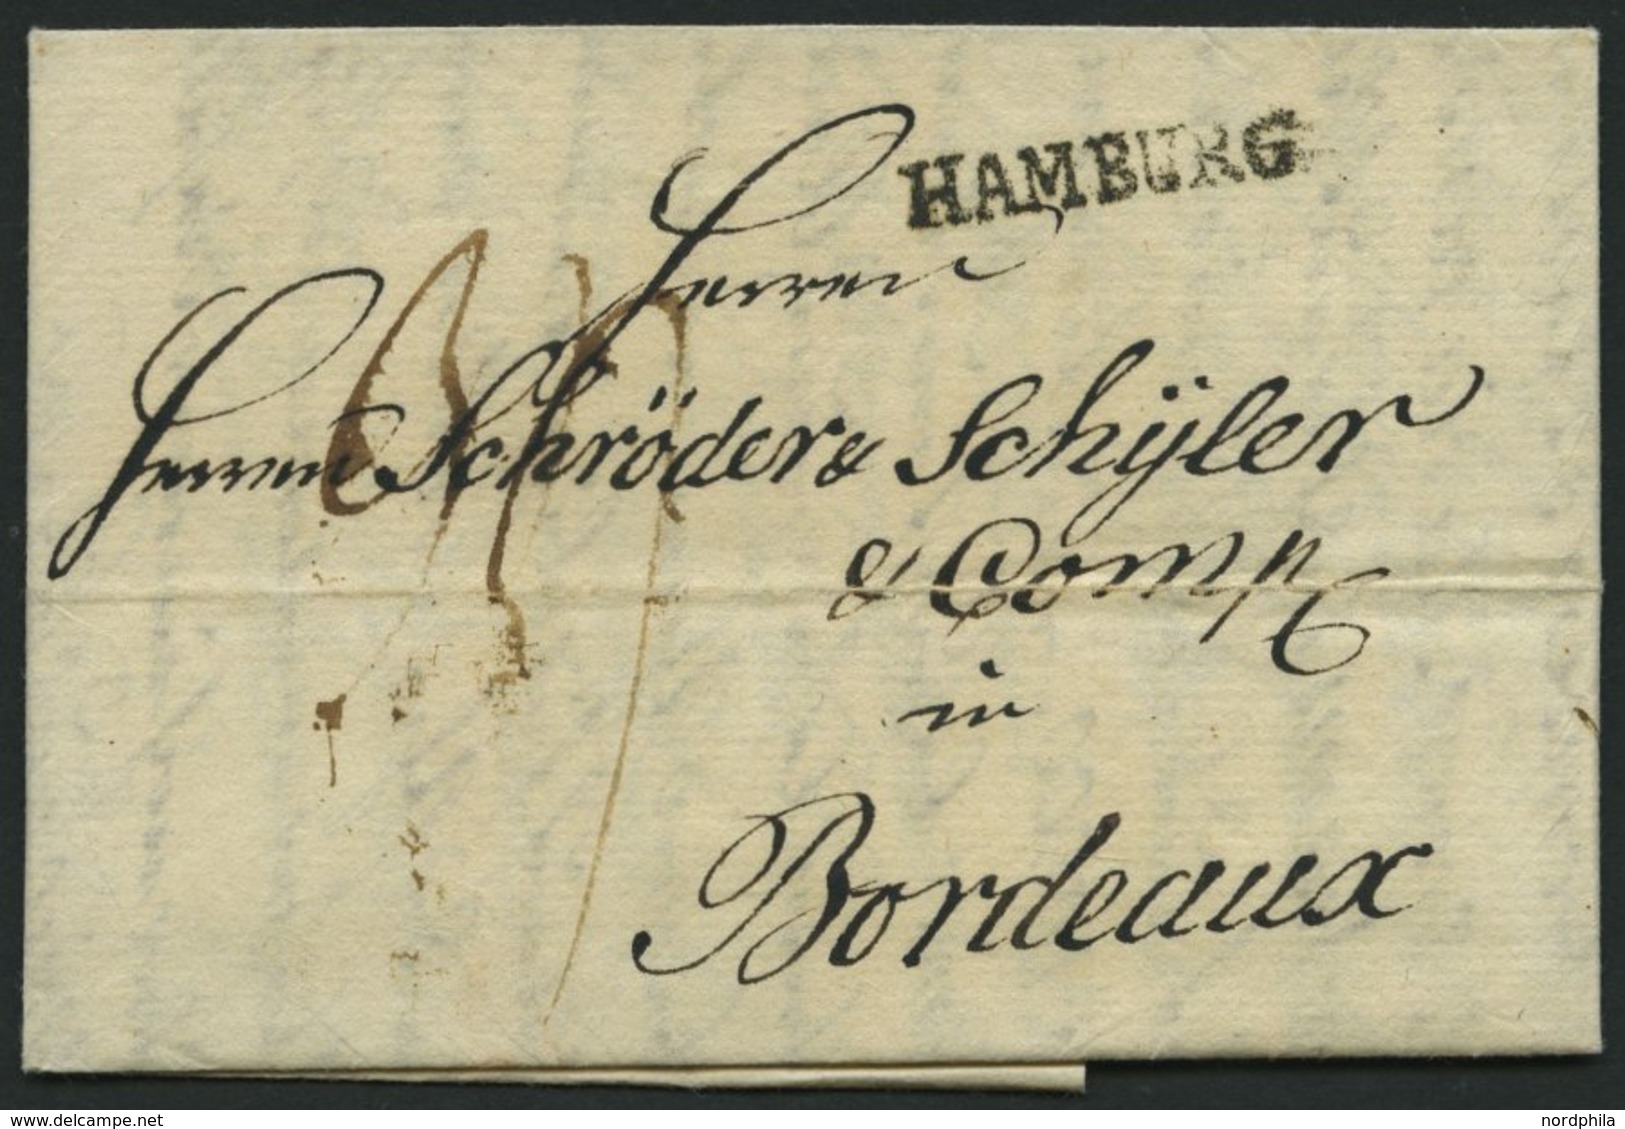 HAMBURG
Herren
Herren Schröder & Schÿler
& Comp
in
Bordeaux
delcampe.net
nordphila